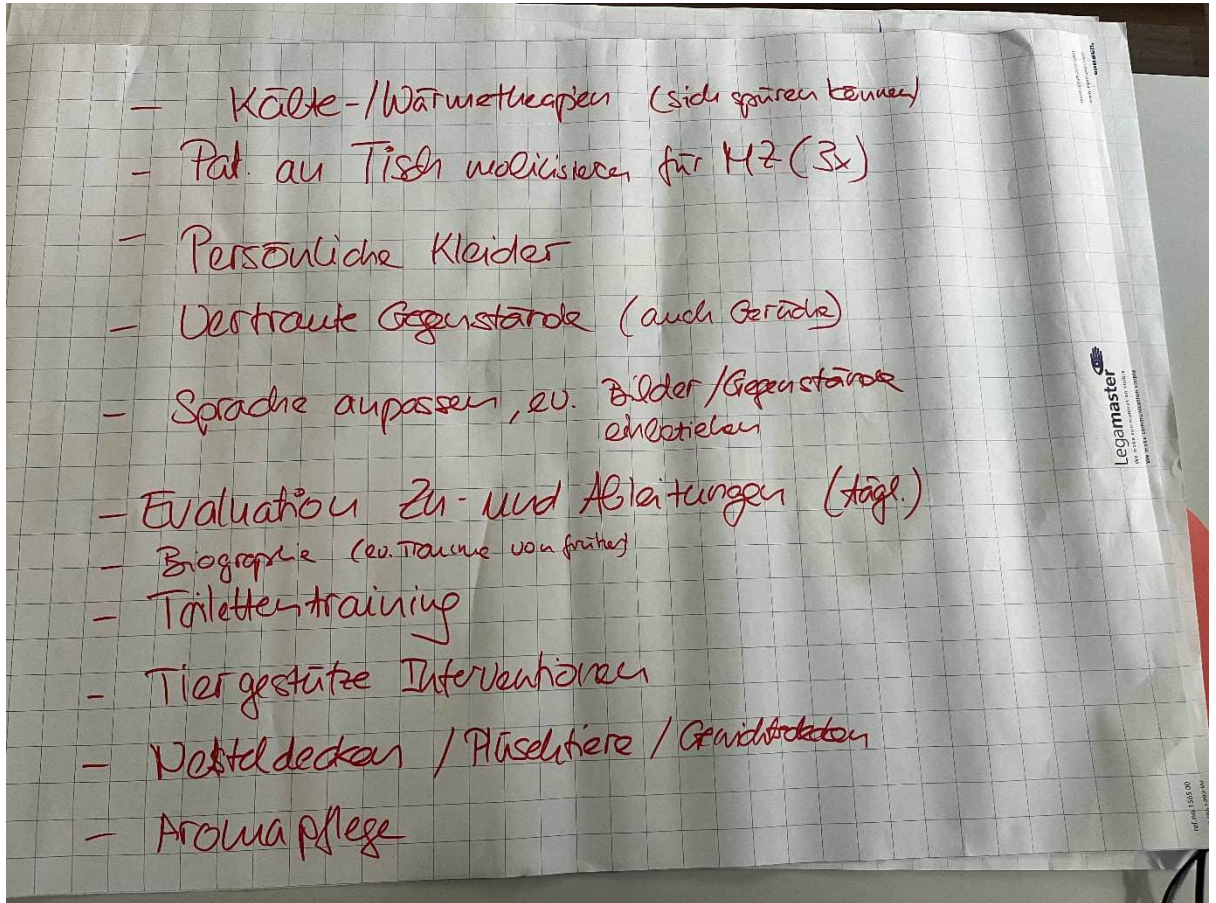 - Kälte-/Wärmetherapien (sich spüren können)
- Pat. an Tisch mobilisieren für MZ (3x)
- Persönliche Kleider
- Vertraute Gegenstände (auch Gerüche)
- Sprache anpassen, ev. Bilder/Gegenstände
einbeziehen
- Evaluation Zu- und Ableitungen (tägl.)
- Biographie (ev. Traume von früher)
- Toilettentraining
- Tiergestütze Interventionen
- Nesteldecken / Plüschtiere / Gewichtdecken
- Aromapflege
Legamaster
We make communication visible